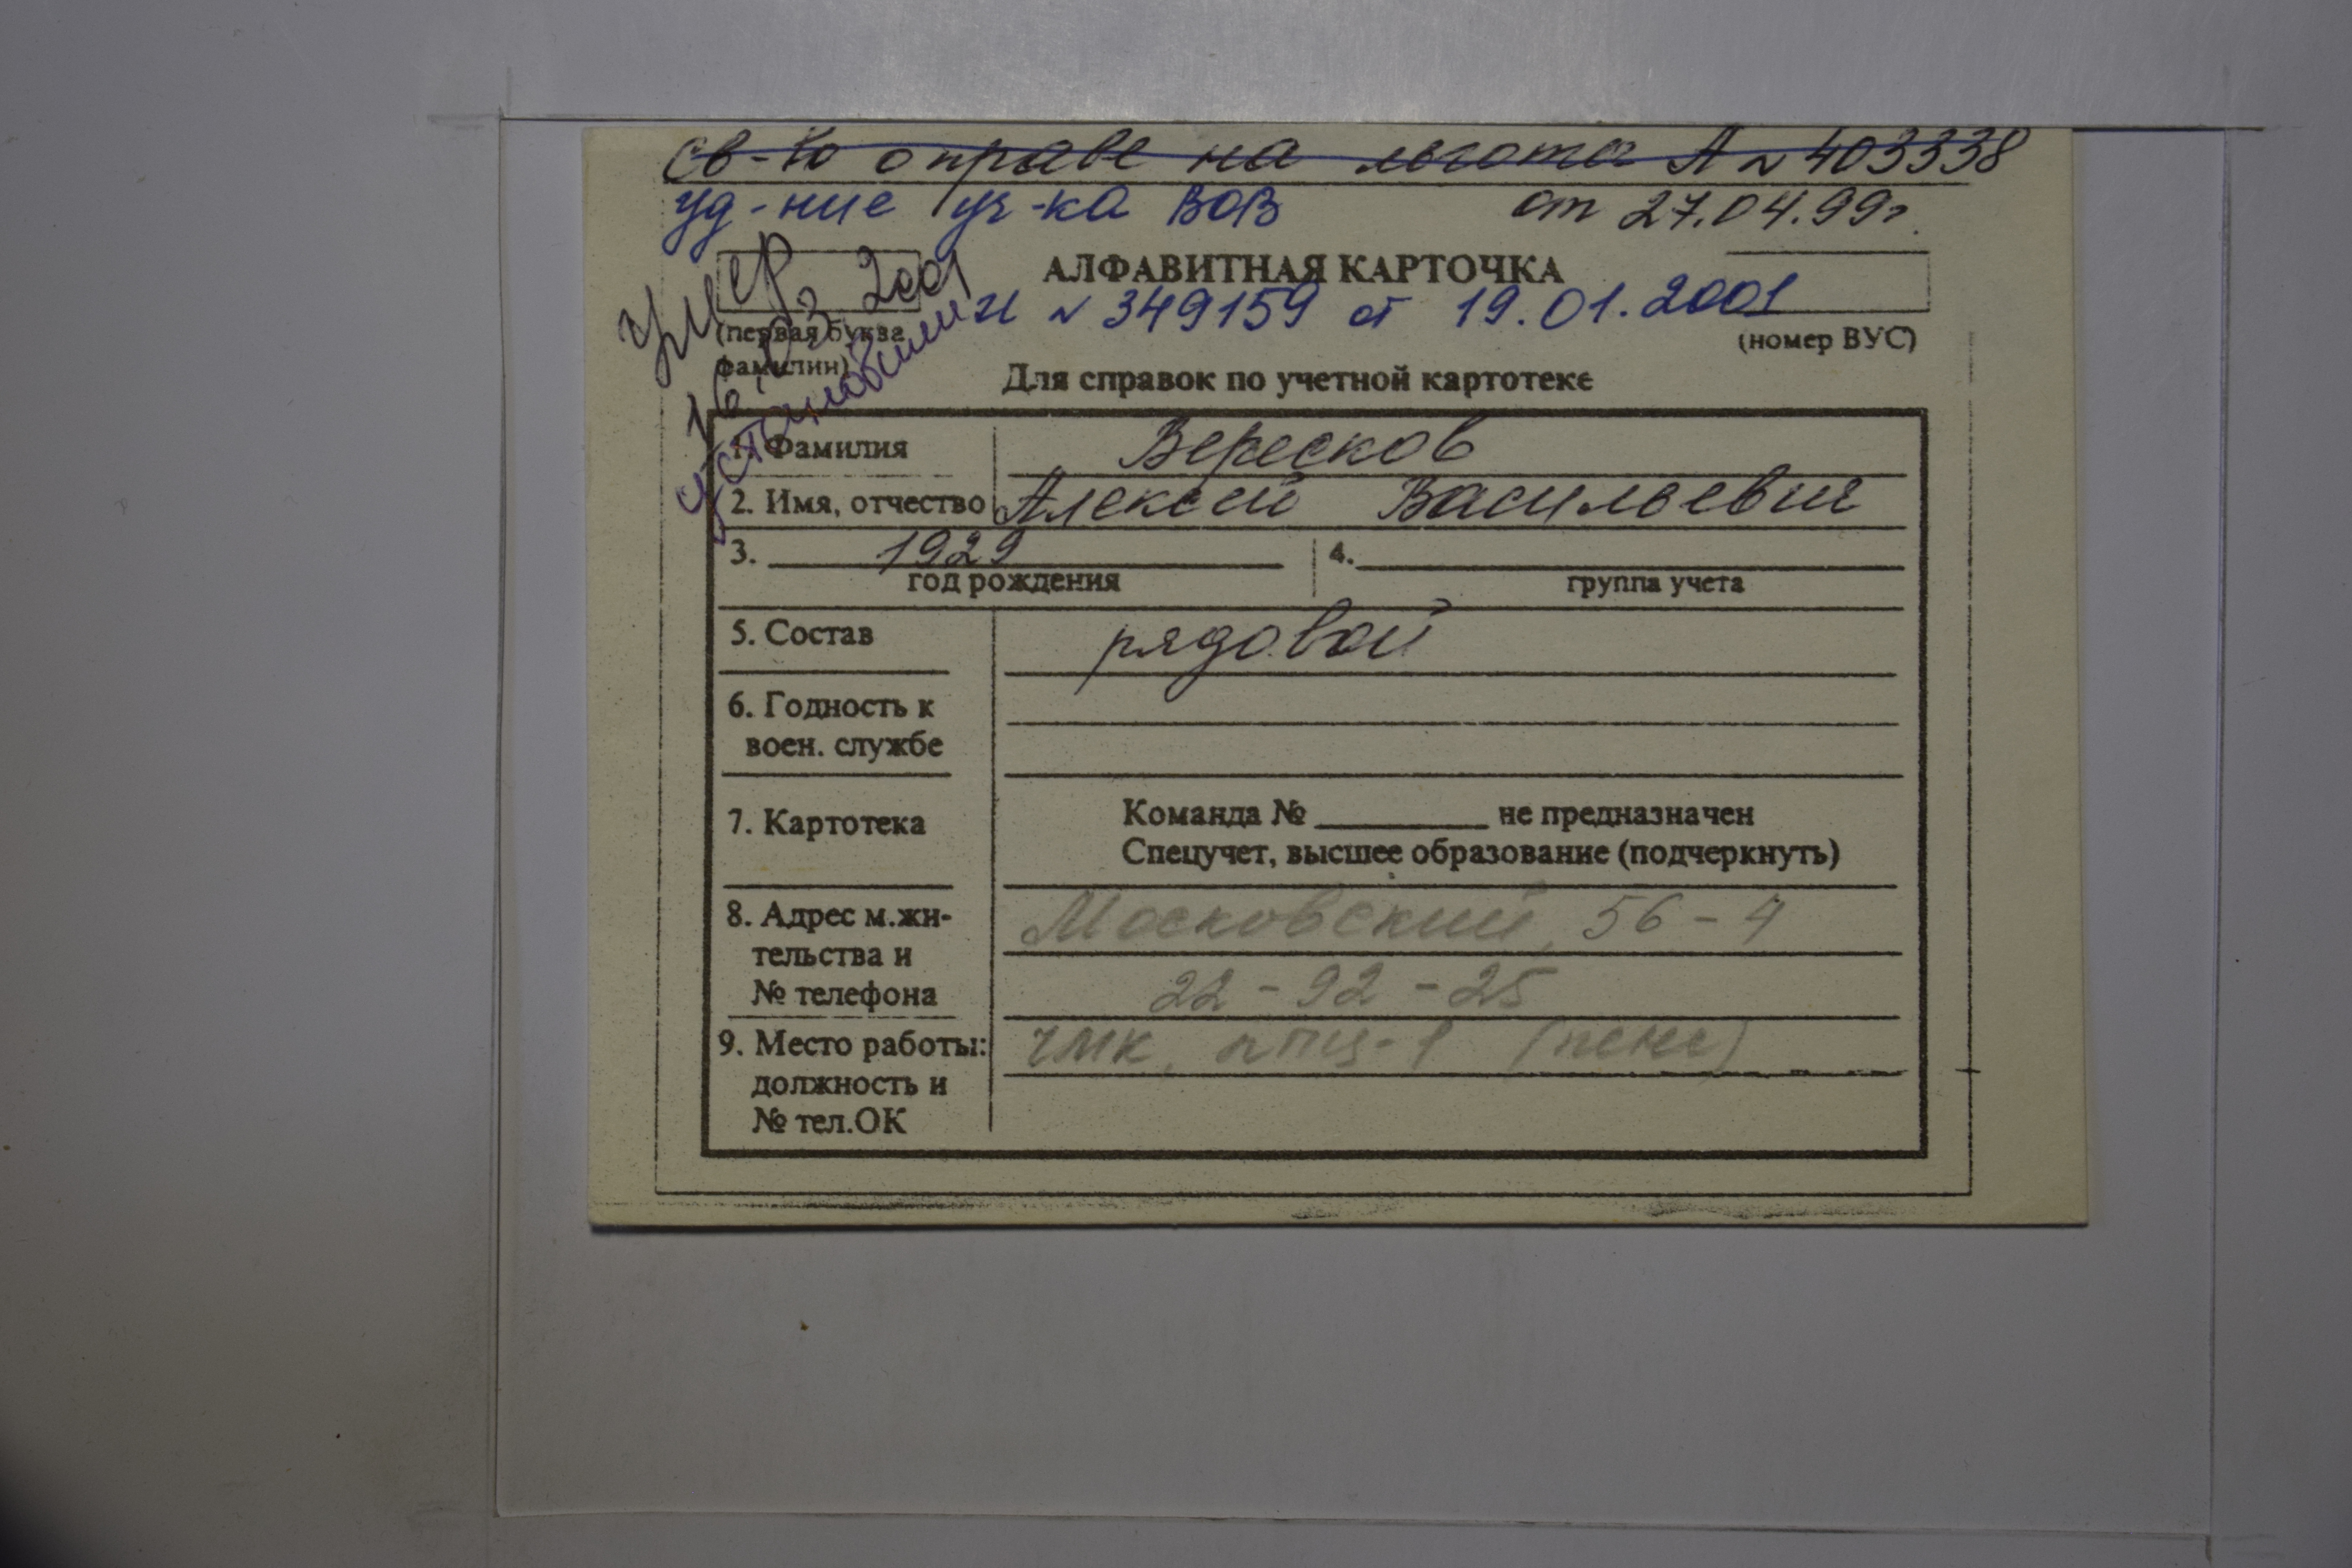 св-во о праве на льготы А № 403338
уд-ние уч-ка ВОВ от 27.04.99г.
умер
16.03.2001
АЛФАВИТНАЯ КАРТОЧКА
И № 349159 от 19.01.2001
(первая буква
фамилии)
(номер ВУС)
Для справок по учетной картотеке
1. Фамилия Вересков
2. Имя, отчество Алексей Васильевич
3. 1929 4.
год рождения группа учета
5. Состав рядовой
6. Годность к
воен. службе
7. Картотека Команда № не предназначен
Спецучет, высшее образование (подчеркнуть)
8. Адрес м.жи- Московский, 56-4
тельства и
№ телефона 22-92-25
9. Место работы: ЧМК, ЛПЦ-1 (пенс)
должность и
№ тел.ОК